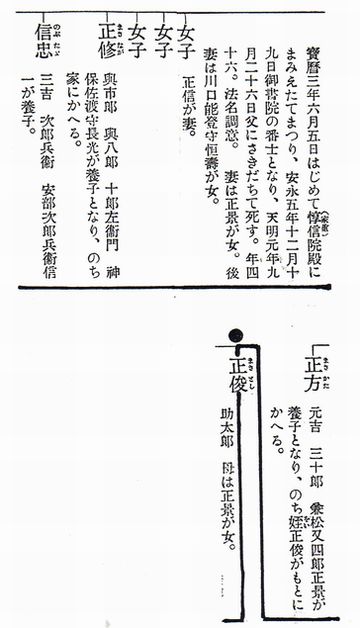 寶暦三年六月五日はじめて惇信院殿に
まみえたてまつり、安永五年十二月十
九日御書院の番士となり、天明元年九
月二十六日父にさきだちて死す。年四
十六。法名調意。 妻は正景が女。後
妻は川口能登守恒壽が女。
女子 正信が妻。
女子
女子
正修 與市郎 與八郎 十郎左衞門 神
保佐渡守長光が養子となり、のち
家にかへる。
信忠 三吉 次郎兵衞 安部次郎兵衞信
一が養子。
正方 元吉 三十郎 乘松又四郎正景が
養子となり、のち姪正俊がもとに
かへる。
正俊 助太郎 母は正景が女。